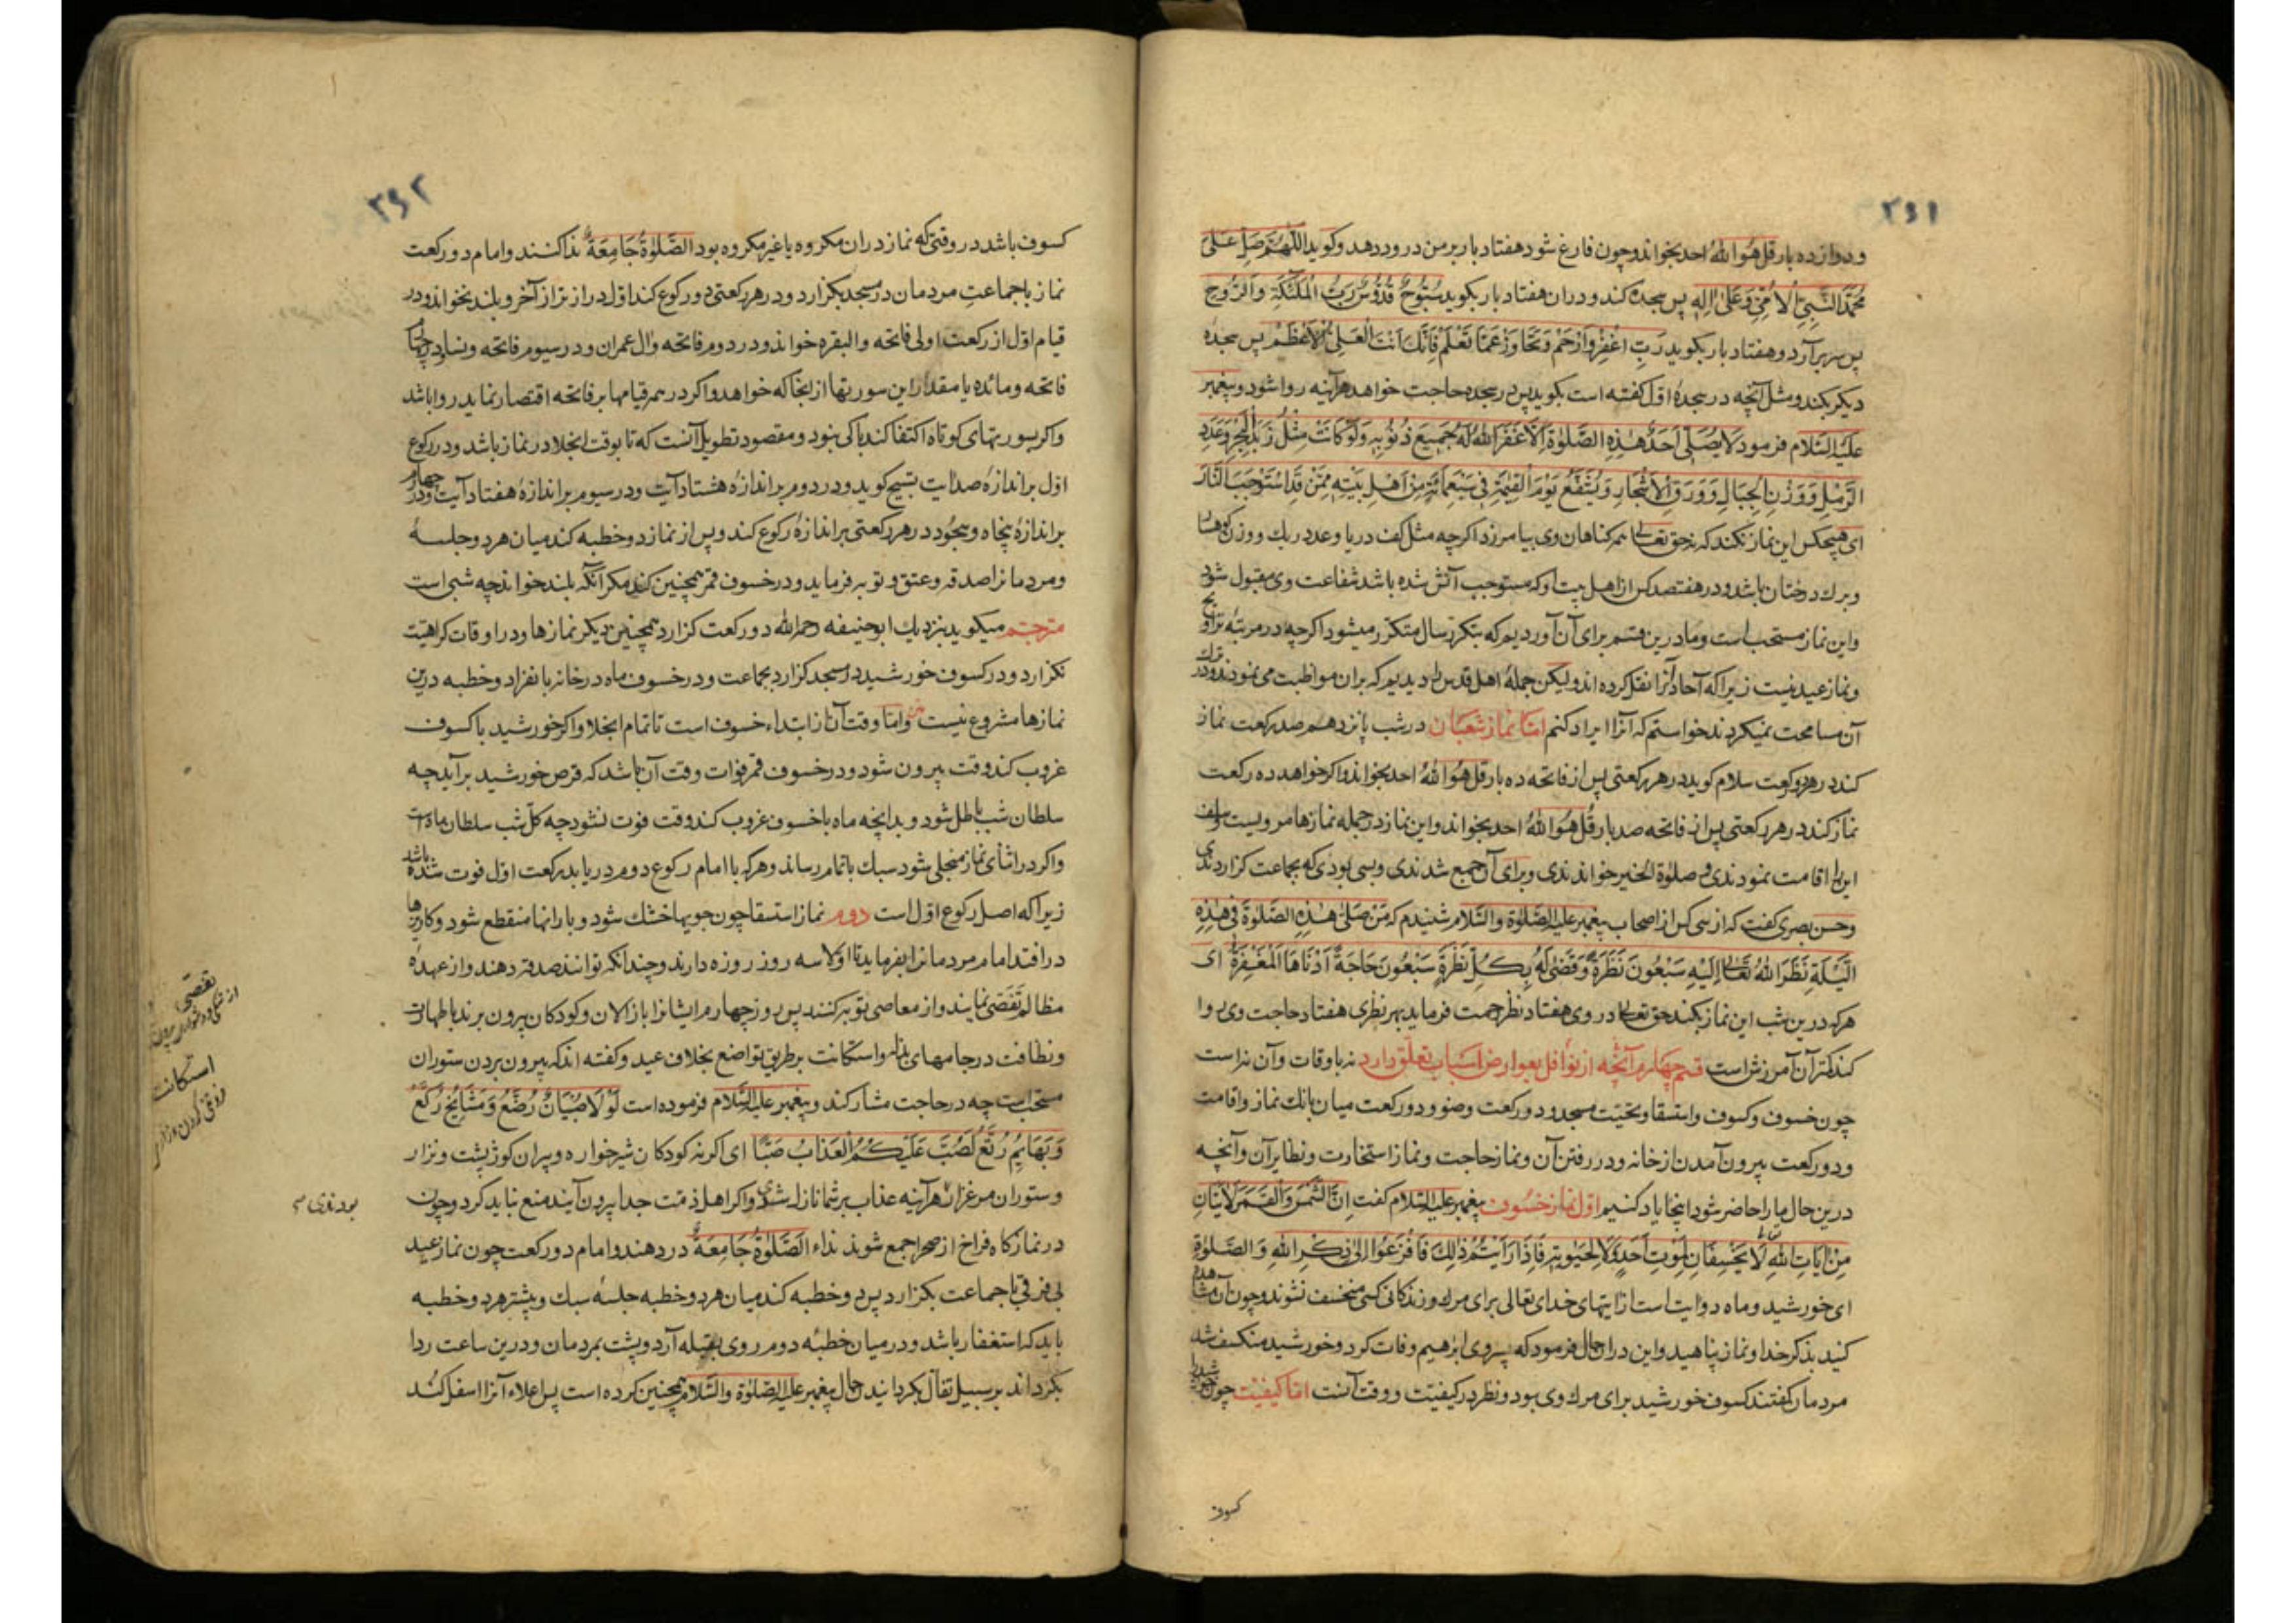 ۳۶۱
و دوازده بار قل هو الله احد بخواند و چون فارغ شود هفتاد بار بر من درود دهد و کوید اللهم صل علی
محمد النبی الامی و علی اله پس سجده کند و دران هفتاد بار بکوید سبوح قدوس رب الملئکة والروح
پس سر برآرد و هفتاد بار بکوید رب اغفر وارحم وتجاوز عما تعلم فانک انت العلی الاعظم پس سجده
دیکر بکند و مثل آنچه در سجده اول کفته است بکوید پس در سجده حاجت خواهد هرآینه روا شود و پیغمبر
علیه السلام فرمود لا یصلی احد هذه الصلوة الا غفر الله له جمیع ذنوبه ولو کانت مثل زبد البحر وعدد
الرمل ووزن الجبال وورق الاشجار ویشفع یوم القیمة فی سبعمائة من اهل بیته ممن قد استوجب النار
ای هیچکس این نماز نکند که نه حق تعالی همه کناهان وی بیامرزد اکرچه مثل کف دریا و عدد ریک و وزن کوهها
و برک درختان باشد و در هفتصد کس از اهل بیت او که مستوجب آتش شده باشد شفاعت وی مقبول شود
و این نماز مستحب است و ما درین قسم برای آن آوردیم که بتکرر سال متکرر میشود اکرچه در مرتبه تراویح
و نماز عید نیست زیراکه آحاد آنرا نقل کرده اند ولیکن جمله اهل قدس را دیدیم که بران مواظبت می نمودند و در ترک
آن مسامحت نمیکردند خواستم که آنرا ایراد کنم اما نماز شعبان در شب پانزدهم صد رکعت نماز
کند در هر دو رکعت سلام کوید در هر رکعتی پس از فاتحه ده بار قل هو الله احد بخواند و اکر خواهد ده رکعت
نماز کند در هر رکعتی پس از فاتحه صد بار قل هو الله احد بخواند و این نماز در جمله نمازها مرویست و سلف
این را اقامت نمودندی و صلوة الخیر خواندندی و برای آن جمع شدندی و بسی بودی که بجماعت کزاردندی
و حسن بصری کفت که از سی کس از اصحاب پیغمبر علیه الصلوة والسلام شنیدم که من صلی هذه الصلوة فی هذه
اللیلة نظر الله تعالی الیه سبعون نظرة وقضی له بکل نظرة سبعون حاجة ادناها المغفرة ای
هرکه درین شب این نماز بکند حق تعالی در وی هفتاد نظر رحمت فرماید بهر نظری هفتاد حاجت وی روا
کند کمتر آن آمرزش است قسم چهارم آنچه از نوافل بعوارض اسباب تعلق دارد نه باوقات و آن نه است
چون خسوف و کسوف و استسقا و تحیت مسجد و دو رکعت وضو و دو رکعت میان بانک نماز و اقامت
و دو رکعت بیرون آمدن از خانه و در رفتن آن و نماز حاجت و نماز استخارت و نظایر آن و آنچه
درین حال ما را حاضر شود اینجا یاد کنیم اول نماز خسوف پیغمبر علیه السلام کفت ان الشمس والقمر لآیتان
من آیات الله لا یخسفان لموت احد ولا لحیوته فاذا رأیتم ذلک فافزعوا الی ذکر الله والصلوة
ای خورشید و ماه دو آیت است از آیتهای خدای تعالی برای مرک و زندکانی کسی منخسف نشوند و چون آن مشاهده
کنید بذکر خدا و نماز پناهید و این دران حال فرمود که پسر وی ابرهیم وفات کرد و خورشید منکسف شد
مردمان کفتند کسوف خورشید برای مرک وی بود و نظر در کیفیت و وقت آنست اما کیفیت چون خورشید را
کسوف
۳۶۲
کسوف باشد در وقتی که نماز دران مکروه یا غیر مکروه بود الصلوة جامعة ندا کنند و امام دو رکعت
نماز با جماعت مردمان در مسجد بکزارد و در هر رکعتی دو رکوع کند اول دراز تر از آخر و بلند نخواند و در
قیام اول از رکعت اولی فاتحه و البقره خواند و در دوم فاتحه و ال عمران و در سیوم فاتحه و نسا و در چهارم
فاتحه و مائده یا مقدار این سورتها از انجا که خواهد و اکر در همه قیامها بر فاتحه اقتصار نماید روا باشد
و اکر بسورتهای کوتاه اکتفا کند باکی نبود و مقصود تطویل آنست که تا بوقت انجلا در نماز باشد و در رکوع
اول بر اندازه صد آیت تسبیح کوید و در دوم بر اندازه هشتاد آیت و در سیوم بر اندازه هفتاد آیت و در چهارم
بر اندازه پنجاه و سجود در هر رکعتی بر اندازه رکوع کند و پس از نماز دو خطبه کند میان هر دو جلسه
و مردمانرا صدقه و عتق و توبه فرماید و در خسوف قمر همچنین کند مکر آنکه بلند خواند چه شبی است
مترجم میکوید بنزدیک ابو حنیفه رحمه الله دو رکعت کزارد همچنین دیکر نمازها و در اوقات کراهیت
نکزارد و در کسوف خورشید در مسجد کزارد بجماعت و در خسوف ماه در خانه بانفراد و خطبه درین
نمازها مشروع نیست و اما وقت آن از ابتداء خسوف است تا تمام انجلا و اکر خورشید با کسوف
غروب کند وقت بیرون شود و در خسوف قمر فوات وقت آن باشد که قرص خورشید برآید چه
سلطان شب باطل شود و بدانچه ماه با خسوف غروب کند وقت فوت نشود چه کل شب سلطان ماه است
و اکر در اثنای نماز منجلی شود سبک باتمام رساند و هرکه با امام رکوع دوم دریابد رکعت اول فوت شده باشد
زیراکه اصل رکوع اول است دوم نماز استسقا چون جویها خشک شود و بارانها منقطع شود و کاریزها
در افتد امام مردمانرا بفرماید تا اولا سه روز روزه دارند و چندانکه توانند صدقه دهند و از عهده
مظالم تفصی نمایند و از معاصی توبه کنند پس روز چهارم ایشانرا با زالان و کودکان بیرون برند با طهارت
و نظافت در جامهای بذله و استکانت بر طریق تواضع بخلاف عید و کفته اند که بیرون بردن ستوران
مستحب است چه در حاجت مشارکند و پیغمبر علیه السلام فرموده است لولا صبیان رضع ومشایخ رکع
وبهایم رتع لصب علیکم العذاب صبا ای اکر نه کودکان شیرخواره و پیران کوژ پشت و نزار
و ستوران مرغزار هرآینه عذاب بر شما نازل شدی و اکر اهل ذمت جدا بیرون آیند منع نباید کرد و چون
در نمازکاه فراخ از صحرا جمع شوند نداء الصلوة جامعة در دهند و امام دو رکعت چون نماز عید
بی فرقی با جماعت بکزارد پس دو خطبه کند میان هر دو خطبه جلسه سبک و بیشتر هر دو خطبه
باید که استغفار باشد و در میان خطبه دوم روی بقبله آرد و پشت بمردمان و درین ساعت ردا
بکرداند بر سبیل تفأل بکردانیدن حال پیغمبر علیه الصلوة والسلام همچنین کرده است پس اعلاء آنرا اسفل کند
تفصی
استکانت
بودندی